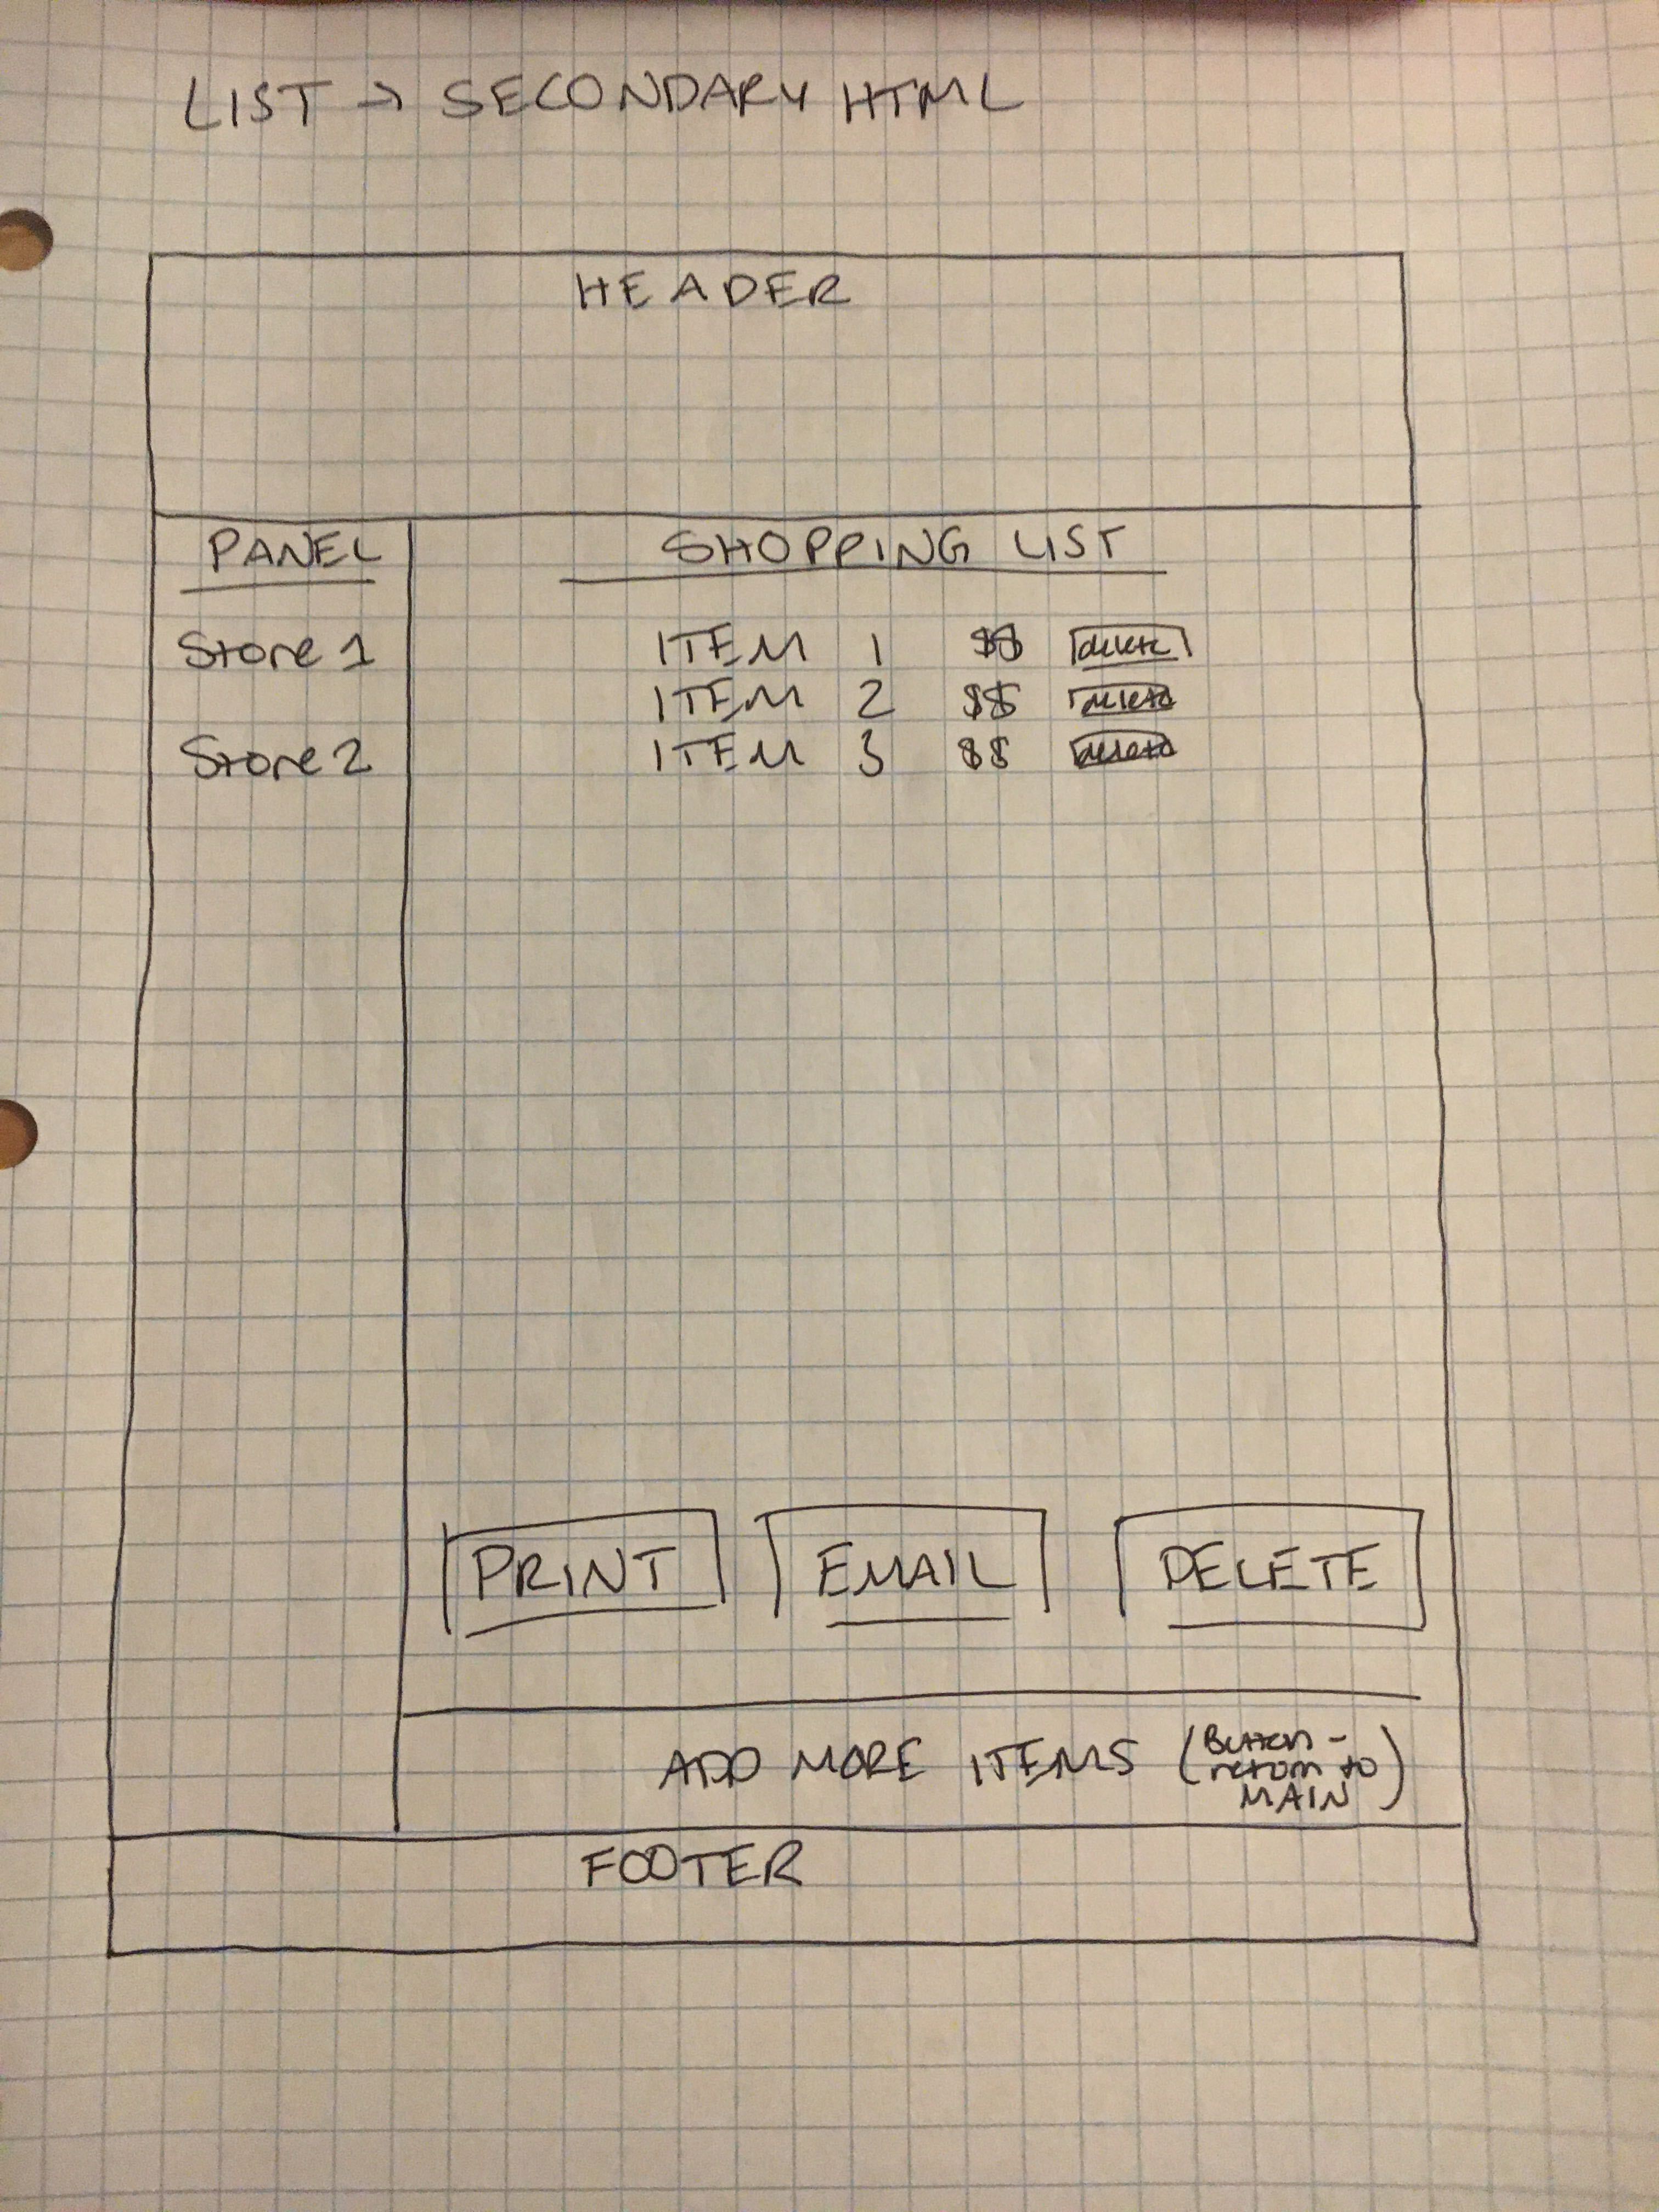 LIST → SECONDARY HTML
HEADER
PANEL
Store 1
Store 2
SHOPPING LIST
ITEM 1 $$ delete
ITEM 2 $$ delete
ITEM 3 $$ delete
PRINT EMAIL DELETE
ADD MORE ITEMS (Button - return to MAIN)
FOOTER